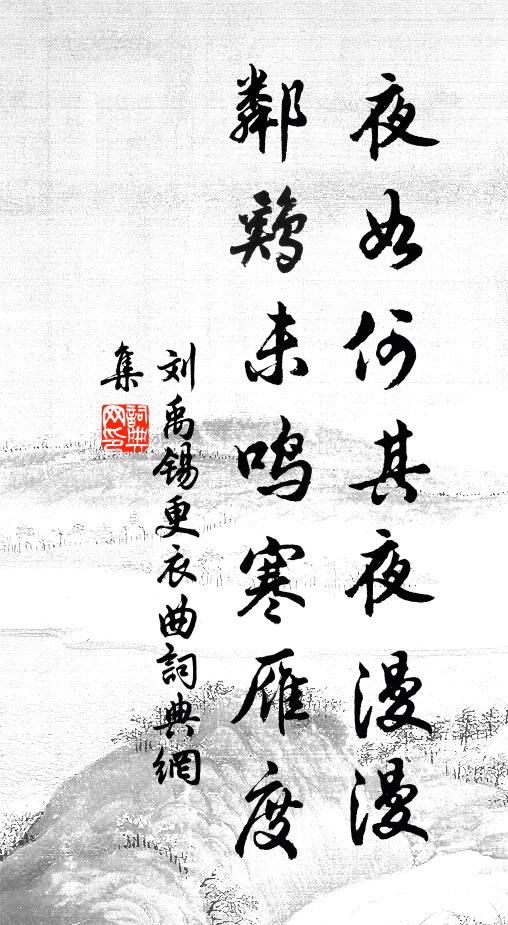 夜如何其夜漫漫
鄰鷄未鳴寒雁度
刘禹锡更衣曲詞典網
集
詞典网印